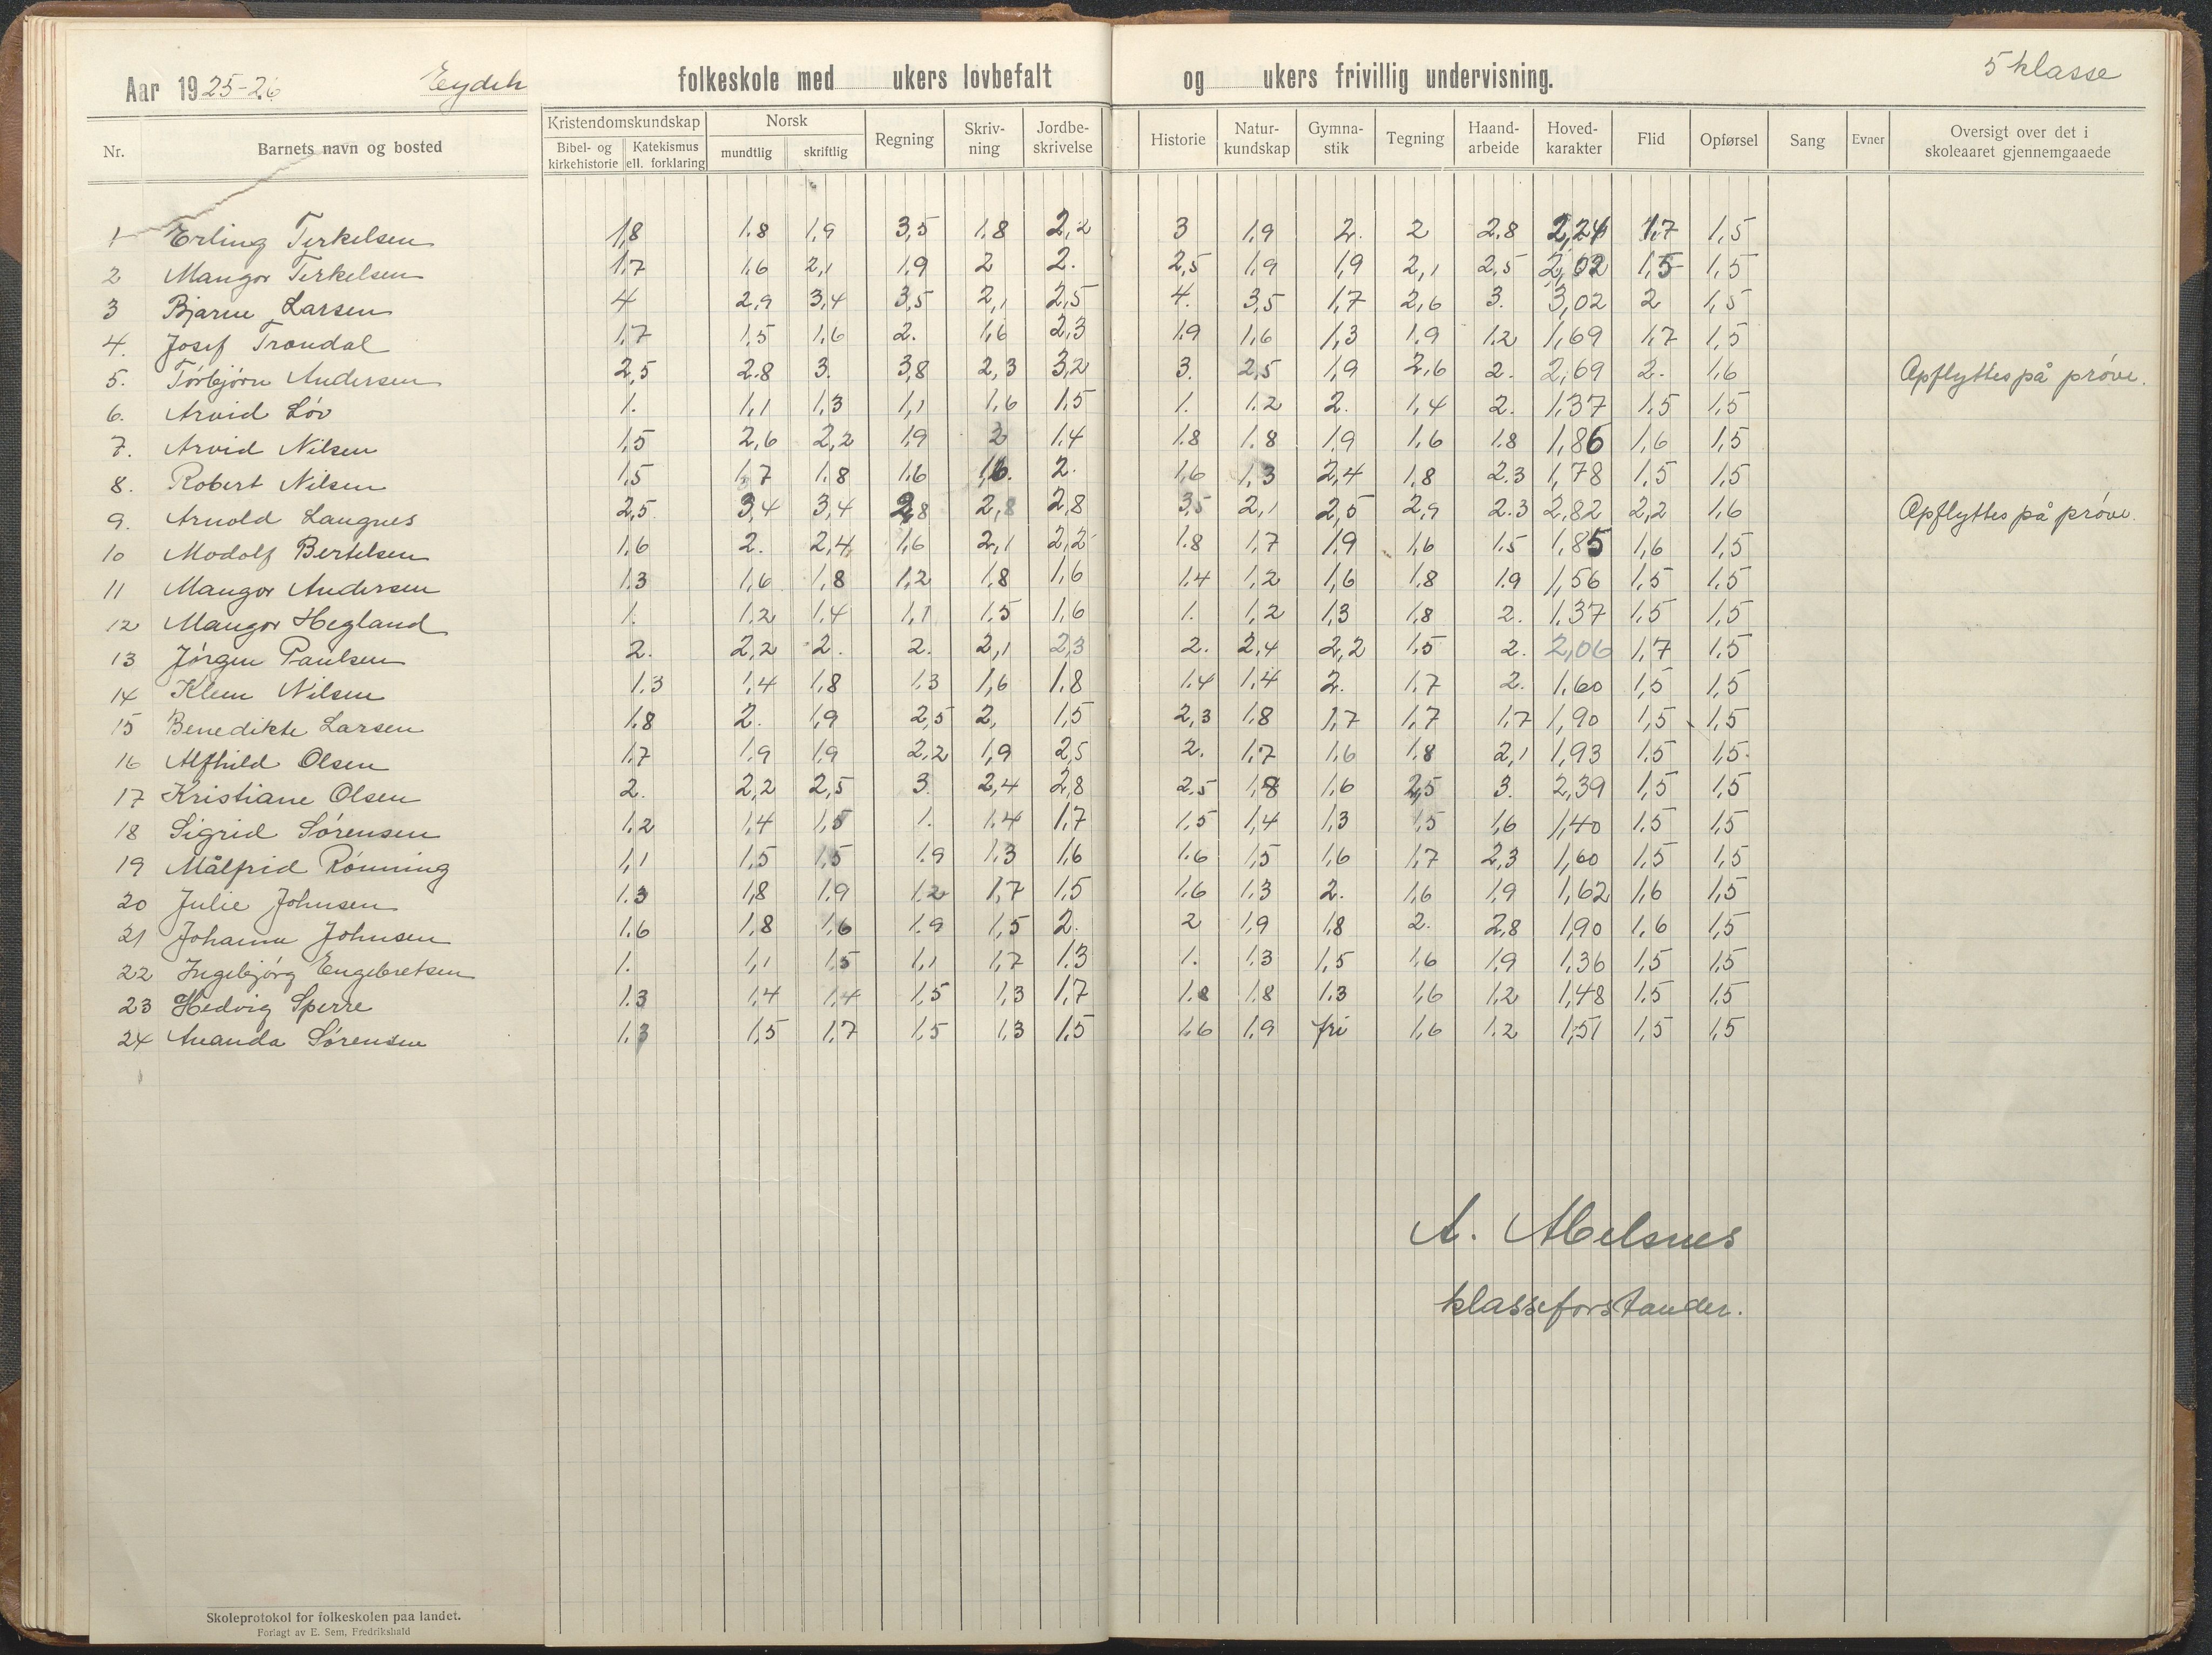 Aar 1925-26 Eydeh folkeskole med ukers lovbefalt og ukers frivillig undervisning. 5 klasse
Nr. Barnets navn og bosted Kristendomskundskap Bibel- og kirkehistorie Katekismus ell. forklaring Norsk mundtlig skriftlig Regning Skriv-ning Jordbe-skrivelse Historie Natur-kundskap Gymna-stik Tegning Haand-arbeide Hoved-karakter Flid Opførsel Sang Evner Oversigt over det i skoleaaret gjennemgaaede
1 Erling Terkelsen 1,8 1.8 1,9 3,5 1.8 2,2 3 1,9 2. 2 2.8 2,24 1,7 1,5
2 Mangor Terkelsen 1,7 1,6 2,1 1,9 2 2. 2,5 1,9 1,9 2,1 2,5 2,02 1,5 1,5
3 Bjarne Larsen 4 2,9 3,4 3,5 2,1 2,5 4. 3,5 1,7 2,6 3. 3,02 2 1,5
4. Josef Trondal 1,7 1,5 1,6 2. 1,6 2,3 1,9 1,6 1,3 1,9 1.2 1,69 1,7 1,5
5. Torbjørn Andersen 2,5 2.8 3. 3,8 2,3 3,2 3. 2,5 1,9 2,6 2. 2,69 2. 1,6 Opflyttes på prøve.
6. Arvid Löv 1. 1,1 1,3 1,1 1,6 1,5 1. 1.2 2. 1,4 2. 1,37 1,5 1,5
7. Arvid Nilsen 1,5 2,6 2,2 1,9 2 1.4 1.8 1.8 1,9 1,6 1.8 1,86 1,6 1,5
8. Robert Nilsen 1,5 1,7 1.8 1,6 1,6. 2. 1,6 1,3 2,4 1,8 2.3 1,78 1,5 1,5
9. Arnold Langnes 2,5 3,4 3,4 2,8 2,8 2,8 3,5 2,1 2,5 2,9 2.3 2,82 2,2 1,6 Opflyttes på prøve.
10 Modolf Bertelsen 1,6 2. 2,4 1,6 2,1 2,2 1.8 1,7 1,9 1,6 1.5 1,85 1,6 1,5
11 Mangor Andersen 1.3 1,6 1,8 1,2 1,8 1,6 1.4 1,2 1,6 1,8 1.9 1,56 1,5 1,5
12 Mangor Hegland 1. 1,2 1,4 1,1 1,5 1,6 1. 1,2 1,3 1,8 2. 1,37 1,5 1,5
13 Jörgen Paulsen 2. 2,2 2. 2. 2,1 2,3 2. 2,4 2,2 1,5 2. 2,06 1,7 1.5
14 Klem Nilsen 1.3 1,4 1,8 1.3 1,6 1,8 1.4 1,4 2. 1.7 2. 1.60 1,5 1,5
15 Benedikte Larsen 1,8 2. 1,9 2,5 2, 1,5 2,3 1.8 1,7 1,7 1,7 1,90 1,5 1,5
16 Alfhild Olsen 1,7 1.9 1,9 2.2 1,9 2,5 2. 1,7 1,6 1,8 2,1 1,93 1.5 1,5.
17 Kristiane Olsen 2. 2,2 2,5 3. 2,4 2,8 2.5 1,8 1,6 2,5 3. 2,39 1,5 1,5
18 Sigrid Sörensen 1,2 1,4 1,5 1. 1.4 1,7 1,5 1,4 1,3 1,5 1,6 1,40 1.5 1,5
19 Målfrid Rönning 1,1 1,5 1,5 1.9 1.3 1,6 1.6 1,5 1,6 1,7 2,3 1,60 1.5 1,5
20 Julie Johnsen 1.3 1,8 1,9 1.2 1,7 1.5 1.6 1.3 2. 1,6 1,9 1,62 1,6 1,5
21 Johanne Johnsen 1.6 1,8 1,6 1.9 1,5 2. 2 1,9 1,8 2. 2,8 1,90 1,6 1,5
22 Ingebjörg Engebretsen 1. 1,1 1,5 1,1 1,7 1.3 1. 1.3 1,5 1,6 1,9 1,36 1,5 1,5
23 Hedvig Sperre 1.3 1,4 1,4 1,5 1,3 1,7 1.8 1.8 1.3 1,6 1,2 1,48 1.5 1,5
24 Ananda Sörensen 1,3 1,5 1,7 1,5 1,3 1,5 1.6 1,9 fri 1,6 1.2 1,51 1,5 1,5
A. Abelsnes
klasseforstander.
Skoleprotokol for folkeskolen paa landet.
Forlagt av E. Sem, Fredrikshald